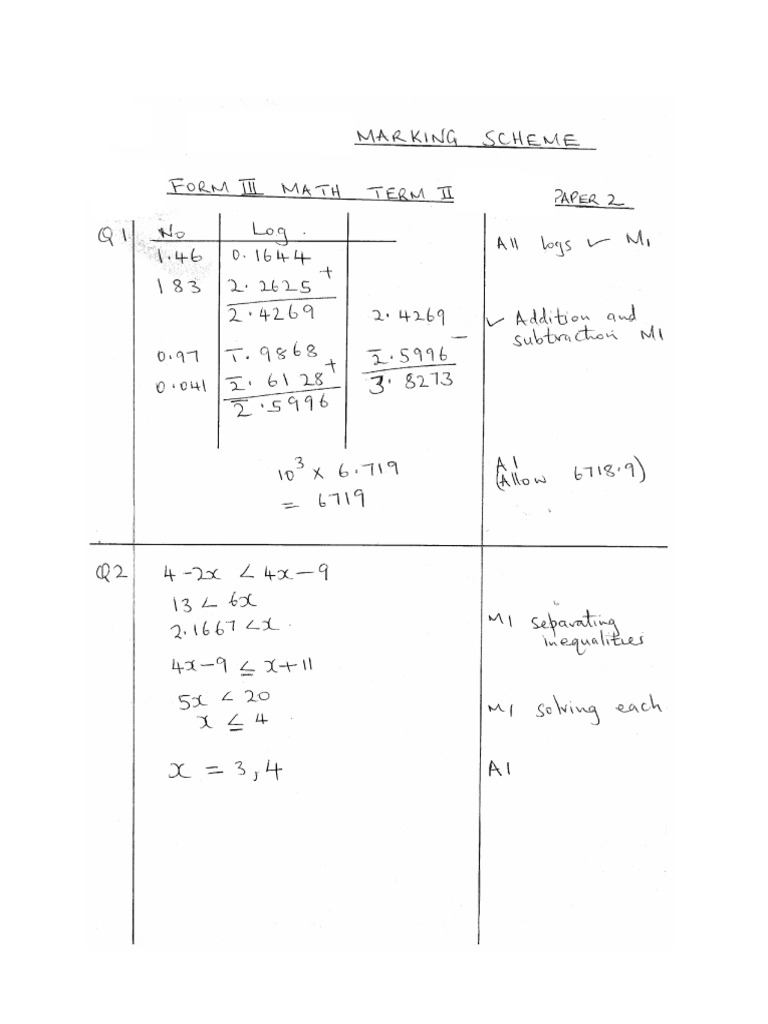 MARKING SCHEME
FORM III MATH TERM II PAPER 2
Q1 No Log. All logs ✓ M1
1.46 0.1644
183 2.2625 +
2.4269 2.4269 ✓ Addition and
subtraction M1
0.97 1̅.9868 2̅.5996 −
0.041 2̅.6128 + 3.8273
2̅.5996
10³ × 6.719 A1
= 6719 (Allow 6718.9)
Q2 4 - 2x < 4x - 9
13 < 6x
2.1667 < x. M1 separating
inequalities
4x - 9 ≤ x + 11
5x < 20
x ≤ 4 M1 solving each
x = 3, 4 A1